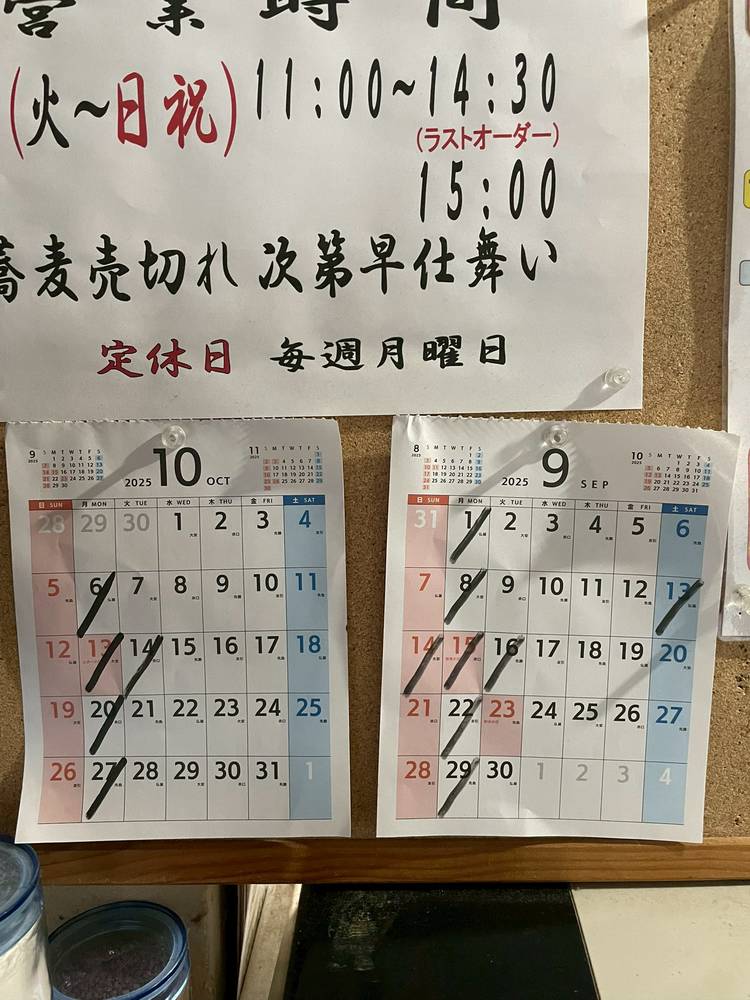 営業時間
(火～日祝) 11:00～14:30
(ラストオーダー)
15:00
蕎麦売切れ 次第早仕舞い
定休日 毎週月曜日
9 2025
2025 10 OCT
11 2025
日 SUN 月 MON 火 TUE 水 WED 木 THU 金 FRI 土 SAT
28 29 30 1 2 3 4
5 6 7 8 9 10 11
12 13 14 15 16 17 18
19 20 21 22 23 24 25
26 27 28 29 30 31 1
8 2025
2025 9 SEP
10 2025
日 SUN 月 MON 火 TUE 水 WED 木 THU 金 FRI 土 SAT
31 1 2 3 4 5 6
7 8 9 10 11 12 13
14 15 16 17 18 19 20
21 22 23 24 25 26 27
28 29 30 1 2 3 4